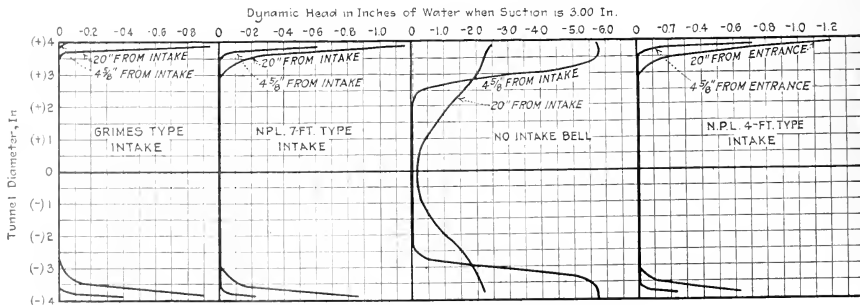 Dynamic Head in Inches of Water when Suction is 3.00 In.
0 -0.2 -0.4 -0.6 -0.8 0 -0.2 -0.4 -0.6 -0.8 -1.0 0 -1.0 -2.0 -3.0 -4.0 -5.0 -6.0 0 -0.7 -0.4 -0.6 -0.8 -1.0 -1.2
Tunnel Diameter, In
(+) 4
(+) 3
(+) 2
(+) 1
0
(-) 1
(-) 2
(-) 3
(-) 4
20" FROM INTAKE
4 5/8" FROM INTAKE
GRIMES TYPE
INTAKE
20" FROM INTAKE
4 5/8" FROM INTAKE
NPL. 7-FT. TYPE
INTAKE
4 5/8" FROM INTAKE
20" FROM INTAKE
NO INTAKE BELL
20" FROM ENTRANCE
4 5/8" FROM ENTRANCE
N.P.L. 4-FT. TYPE
INTAKE